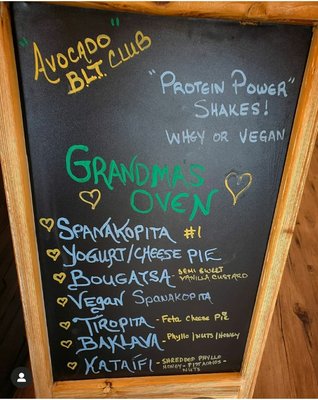 "AVOCADO"
B.L.T. CLUB
"PROTEIN POWER"
SHAKES!
WHEY OR VEGAN
GRANDMAS
OVEN
SPANAKOPITA #1
YOGURT/CHEESE PIE
BOUGATSA - SEMI SWEET
VANILLA CUSTARD
VEGAN SPANAKOPITA
TIROPITA - Feta Cheese PIE
BAKLAVA - Phyllo/NUTS/HONEY
KATAIFI - SHREDDED PHYLLO
HONEY - PISTACHIOS -
NUTS